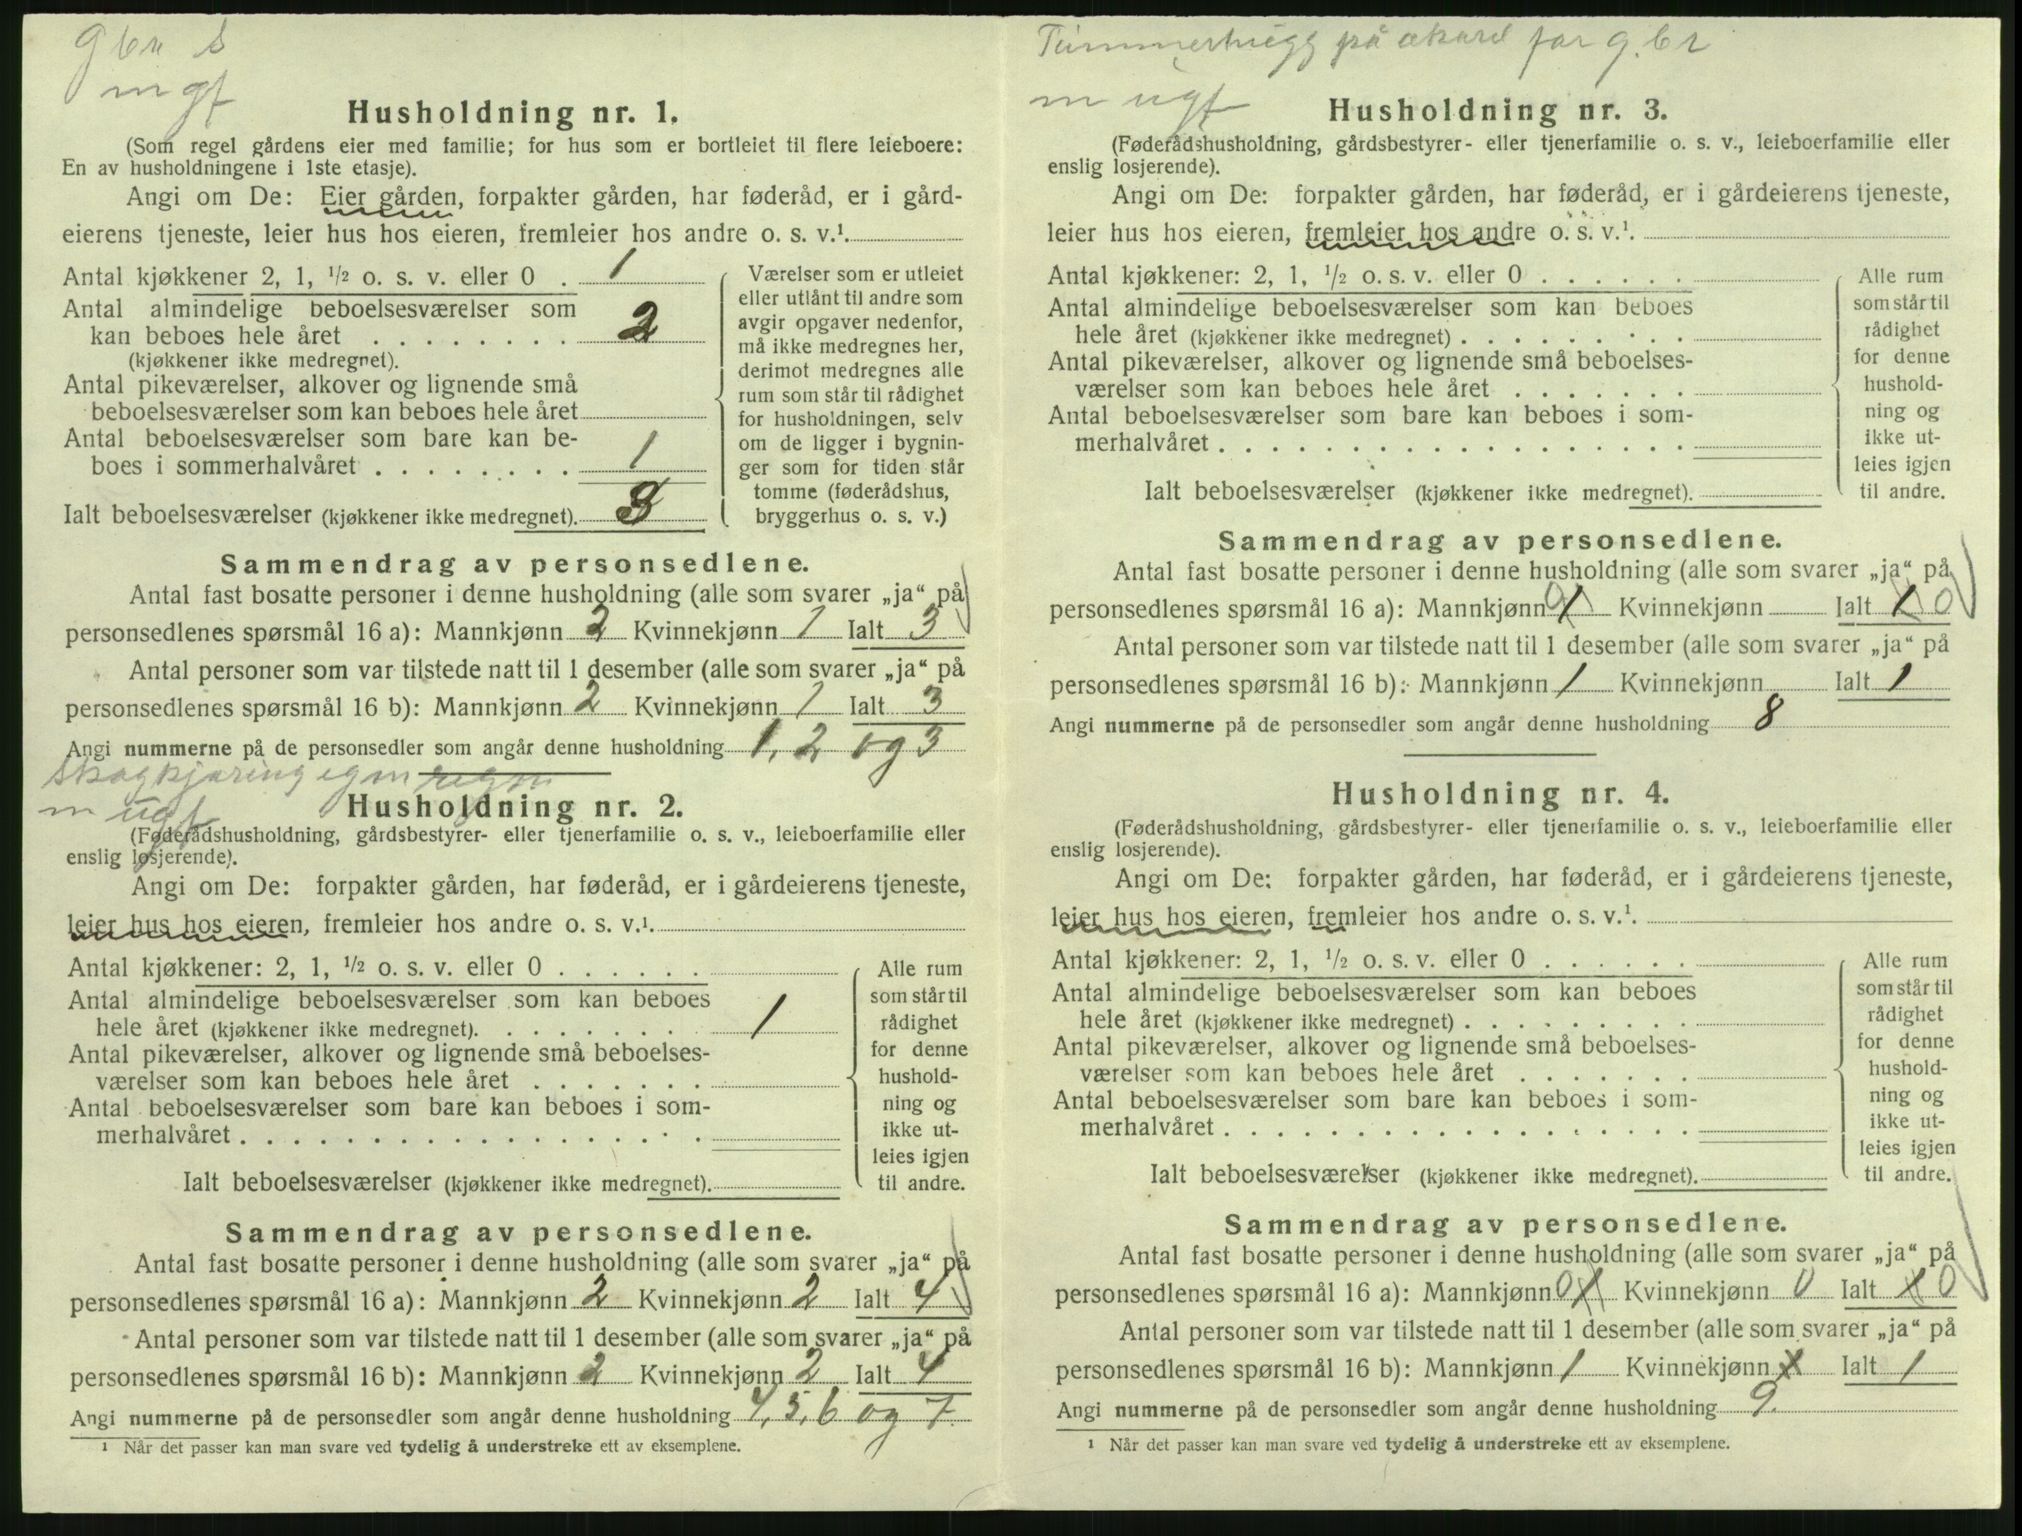 gbr s
m gf
Husholdning nr. 1.
(Som regel gårdens eier med familie; for hus som er bortleiet til flere leieboere:
En av husholdningene i 1ste etasje).
Angi om De: Eier gården, forpakter gården, har føderåd, er i gård-
eierens tjeneste, leier hus hos eieren, fremleier hos andre o. s. v.¹.
Antal kjøkkener 2, 1, ½ o. s. v. eller 0 . 1
Antal almindelige beboelsesværelser som
kan beboes hele året . . . . . . . . 2
(kjøkkener ikke medregnet).
Antal pikeværelser, alkover og lignende små
beboelsesværelser som kan beboes hele året
Antal beboelsesværelser som bare kan be-
boes i sommerhalvåret . . . . . . . . 1
Ialt beboelsesværelser (kjøkkener ikke medregnet). 3
Værelser som er utleiet
eller utlånt til andre som
avgir opgaver nedenfor,
må ikke medregnes her,
derimot medregnes alle
rum som står til rådighet
for husholdningen, selv
om de ligger i bygnin-
ger som for tiden står
tomme (føderådshus,
bryggerhus o. s. v.)
Sammendrag av personsedlene.
Antal fast bosatte personer i denne husholdning (alle som svarer „ja“ på
personsedlenes spørsmål 16 a): Mannkjønn 2 Kvinnekjønn 1 Ialt 3
Antal personer som var tilstede natt til 1 desember (alle som svarer „ja“ på
personsedlenes spørsmål 16 b): Mannkjønn 2 Kvinnekjønn 1 Ialt 3
Angi nummerne på de personsedler som angår denne husholdning 1, 2 og 3
skogkjøring egen regn
m ugf
Husholdning nr. 2.
(Føderådshusholdning, gårdsbestyrer- eller tjenerfamilie o. s. v., leieboerfamilie eller
enslig losjerende).
Angi om De: forpakter gården, har føderåd, er i gårdeierens tjeneste,
leier hus hos eieren, fremleier hos andre o. s. v.¹.
Antal kjøkkener: 2, 1, ½ o. s. v. eller 0 . . . . . .
Antal almindelige beboelsesværelser som kan beboes
hele året (kjøkkener ikke medregnet). . . . . . . . 1
Antal pikeværelser, alkover og lignende små beboelses-
værelser som kan beboes hele året . . . . . . .
Antal beboelsesværelser som bare kan beboes i som-
merhalvåret . . . . . . . . . . . . . . . . . .
Ialt beboelsesværelser (kjøkkener ikke medregnet).
Alle rum
som står til
rådighet
for denne
hushold-
ning og
ikke ut-
leies igjen
til andre.
Sammendrag av personsedlene.
Antal fast bosatte personer i denne husholdning (alle som svarer „ja“ på
personsedlenes spørsmål 16 a): Mannkjønn 2 Kvinnekjønn 2 Ialt 4
Antal personer som var tilstede natt til 1 desember (alle som svarer „ja“ på
personsedlenes spørsmål 16 b): Mannkjønn 2 Kvinnekjønn 2 Ialt 4
Angi nummerne på de personsedler som angår denne husholdning 4, 5, 6 og 7.
¹ Når det passer kan man svare ved tydelig å understreke ett av eksemplene.
Tømmerhugg på akord for g.br
m ugf
Husholdning nr. 3.
(Føderådshusholdning, gårdsbestyrer- eller tjenerfamilie o. s. v., leieboerfamilie eller
enslig losjerende).
Angi om De: forpakter gården, har føderåd, er i gårdeierens tjeneste,
leier hus hos eieren, fremleier hos andre o. s. v.¹.
Antal kjøkkener: 2, 1, ½ o. s. v. eller 0 . . . . . .
Antal almindelige beboelsesværelser som kan beboes
hele året (kjøkkener ikke medregnet) . . . . . . . . .
Antal pikeværelser, alkover og lignende små beboelses-
værelser som kan beboes hele året . . . . . . .
Antal beboelsesværelser som bare kan beboes i som-
merhalvåret . . . . . . . . . . . . . . . . . .
Ialt beboelsesværelser (kjøkkener ikke medregnet).
Alle rum
som står til
rådighet
for denne
hushold-
ning og
ikke ut-
leies igjen
til andre.
Sammendrag av personsedlene.
Antal fast bosatte personer i denne husholdning (alle som svarer „ja“ på
personsedlenes spørsmål 16 a): Mannkjønn 0 1 Kvinnekjønn Ialt 1 0
Antal personer som var tilstede natt til 1 desember (alle som svarer „ja“ på
personsedlenes spørsmål 16 b): Mannkjønn 1 Kvinnekjønn Ialt 1
Angi nummerne på de personsedler som angår denne husholdning 8
Husholdning nr. 4.
(Føderådshusholdning, gårdsbestyrer- eller tjenerfamilie o. s. v., leieboerfamilie eller
enslig losjerende).
Angi om De: forpakter gården, har føderåd, er i gårdeierens tjeneste,
leier hus hos eieren, fremleier hos andre o. s. v.¹.
Antal kjøkkener: 2, 1, ½ o. s. v. eller 0 . . . . . .
Antal almindelige beboelsesværelser som kan beboes
hele året (kjøkkener ikke medregnet) . . . . . . . . .
Antal pikeværelser, alkover og lignende små beboelses-
værelser som kan beboes hele året . . . . . . .
Antal beboelsesværelser som bare kan beboes i som-
merhalvåret . . . . . . . . . . . . . . . . . .
Ialt beboelsesværelser (kjøkkener ikke medregnet).
Alle rum
som står til
rådighet
for denne
hushold-
ning og
ikke ut-
leies igjen
til andre.
Sammendrag av personsedlene.
Antal fast bosatte personer i denne husholdning (alle som svarer „ja“ på
personsedlenes spørsmål 16 a): Mannkjønn 0 1 Kvinnekjønn 0 Ialt 1 0
Antal personer som var tilstede natt til 1 desember (alle som svarer „ja“ på
personsedlenes spørsmål 16 b): Mannkjønn 1 Kvinnekjønn 1 Ialt 1
Angi nummerne på de personsedler som angår denne husholdning 9.
¹ Når det passer kan man svare ved tydelig å understreke ett av eksemplene.